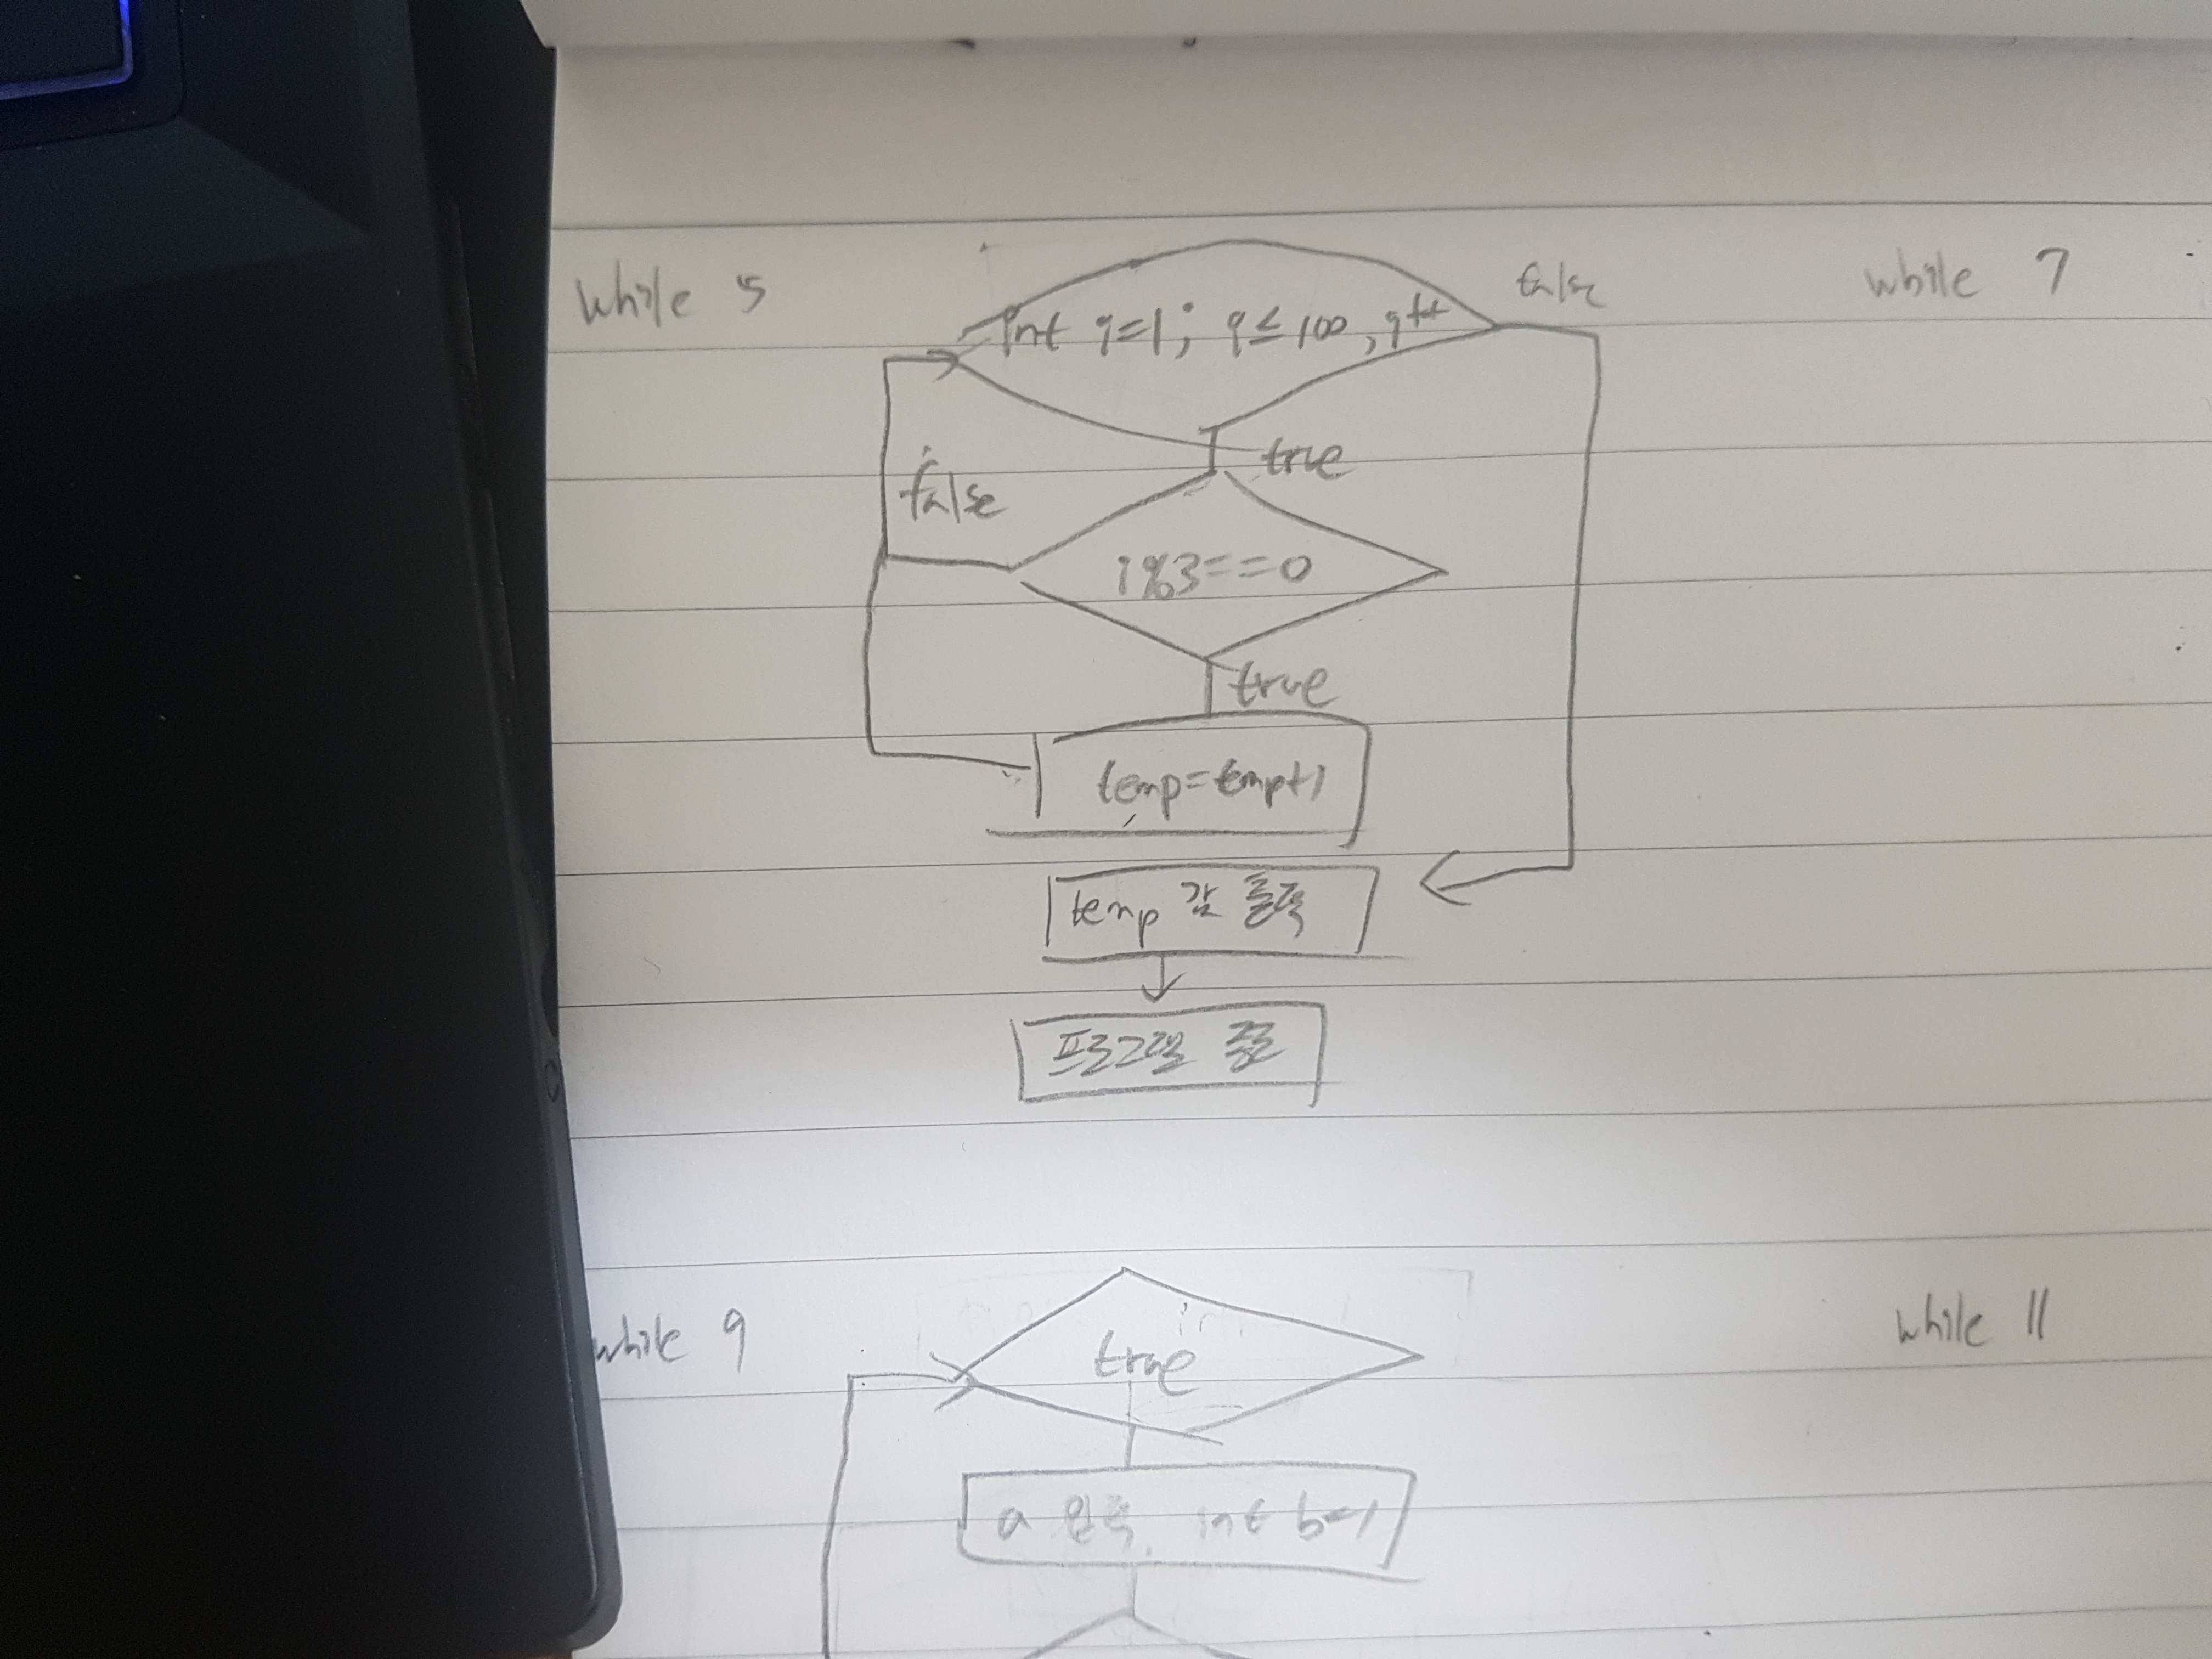 while 5
int i=1; i≤100, i++
false
while 7
true
false
i%3==0
true
temp=temp+1
temp 값 출력
프로그램 종료
while 9
true
while 11
a 입력, int b=1